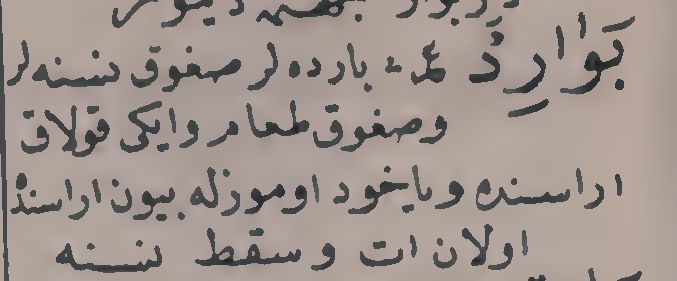 بوارد ع‍ ـه بارده لر صغوق نسنه لر
وصغوق طعام وايكى قولاق
اراسنده وياخود اوموزله بيون اراسنده
اولان ات وسقط نسنه